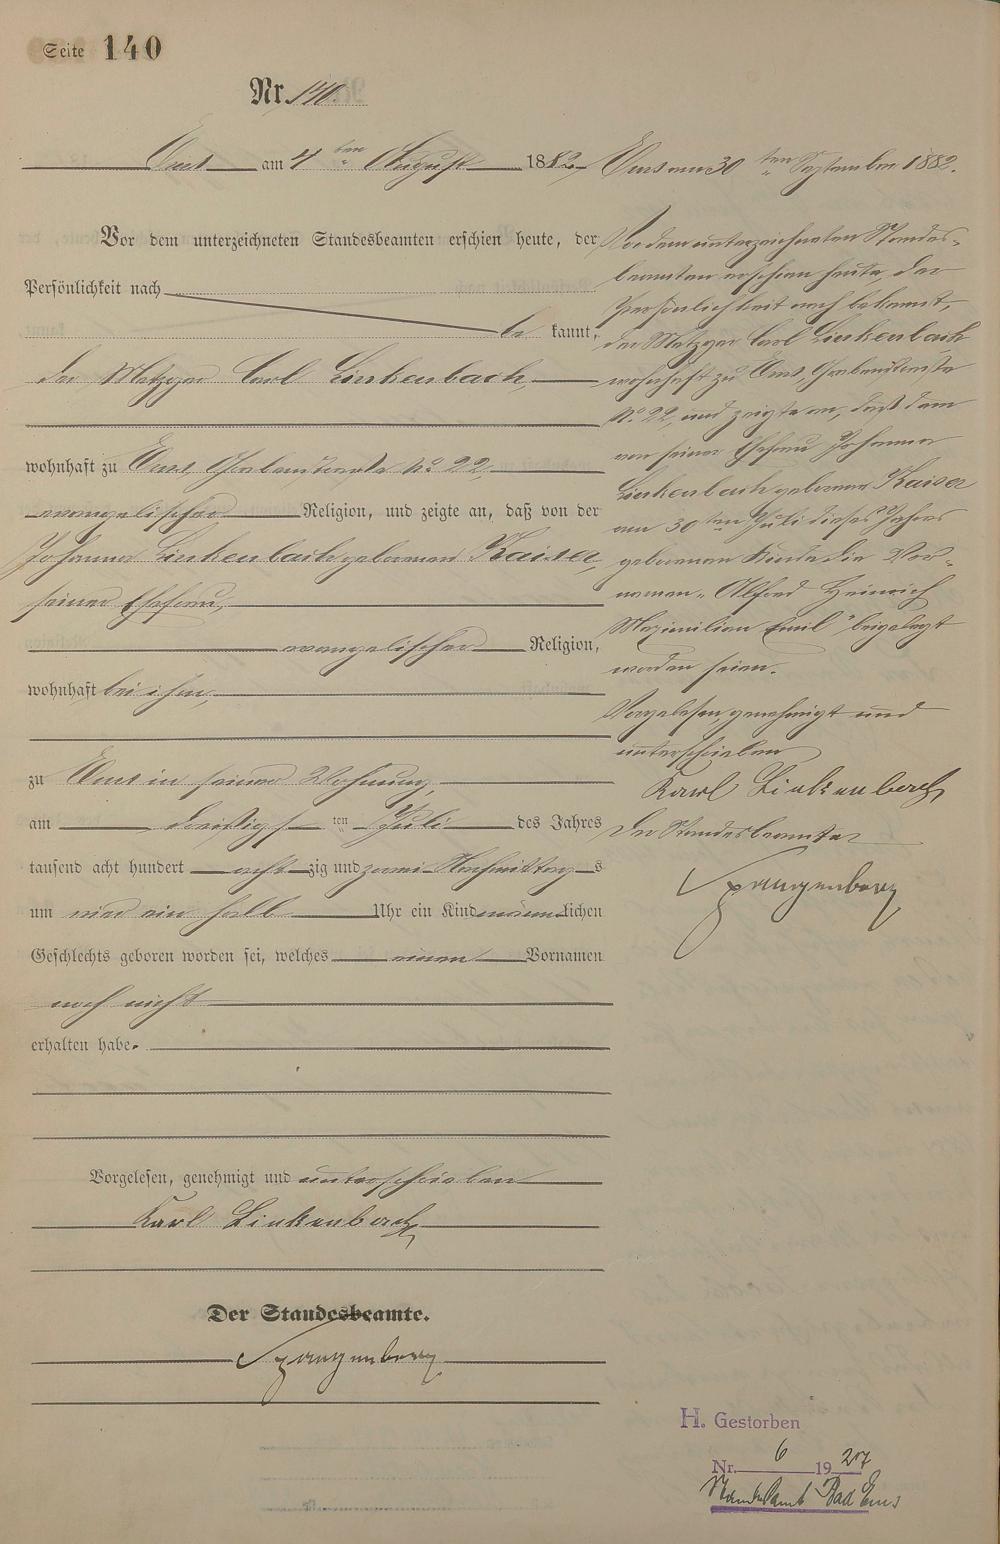 Seite 140
Nr. 140.
Ems am 4ten August 1882
Vor dem unterzeichneten Standesbeamten erschien heute, der
Persönlichkeit nach
be kannt,
der Metzger Carl Linkenbach,
wohnhaft zu Ems, Grabenstraße No 22,
evangelischer Religion, und zeigte an, daß von der
Johanna Linkenbach geborenen Kaiser,
seiner Ehefrau,
evangelischer Religion,
wohnhaft bei ihm,
zu Ems in seiner Wohnung,
am dreißigsten Juli des Jahres
tausend acht hundert achtzig und zwei Nachmittags
um vier ein halb Uhr ein Kind männlichen
Geschlechts geboren worden sei, welches einen Vornamen
noch nicht
erhalten habe.
Vorgelesen, genehmigt und unterschrieben
Karl Linkenbach
Der Standesbeamte.
Spangenberg
Ems am 30ten September 1882.
Vor dem unterzeichneten Standes-
beamten erschien heute, der
Persönlichkeit nach bekannt,
der Metzger Carl Linkenbach
wohnhaft zu Ems, Grabenstraße
No. 22, und zeigte an, daß dem
von seiner Ehefrau Johanna
Linkenbach geborene Kaiser
am 30ten Juli dieses Jahres
geborenen Kinde die Vor-
namen "Alfred Heinrich
Maximilian Emil" beigelegt
worden seien.
Vorgelesen, genehmigt und
unterschrieben
Karl Linkenbach
Der Standesbeamte
Spangenberg
H. Gestorben
Nr. 6 1927
Standesamt Bad Ems